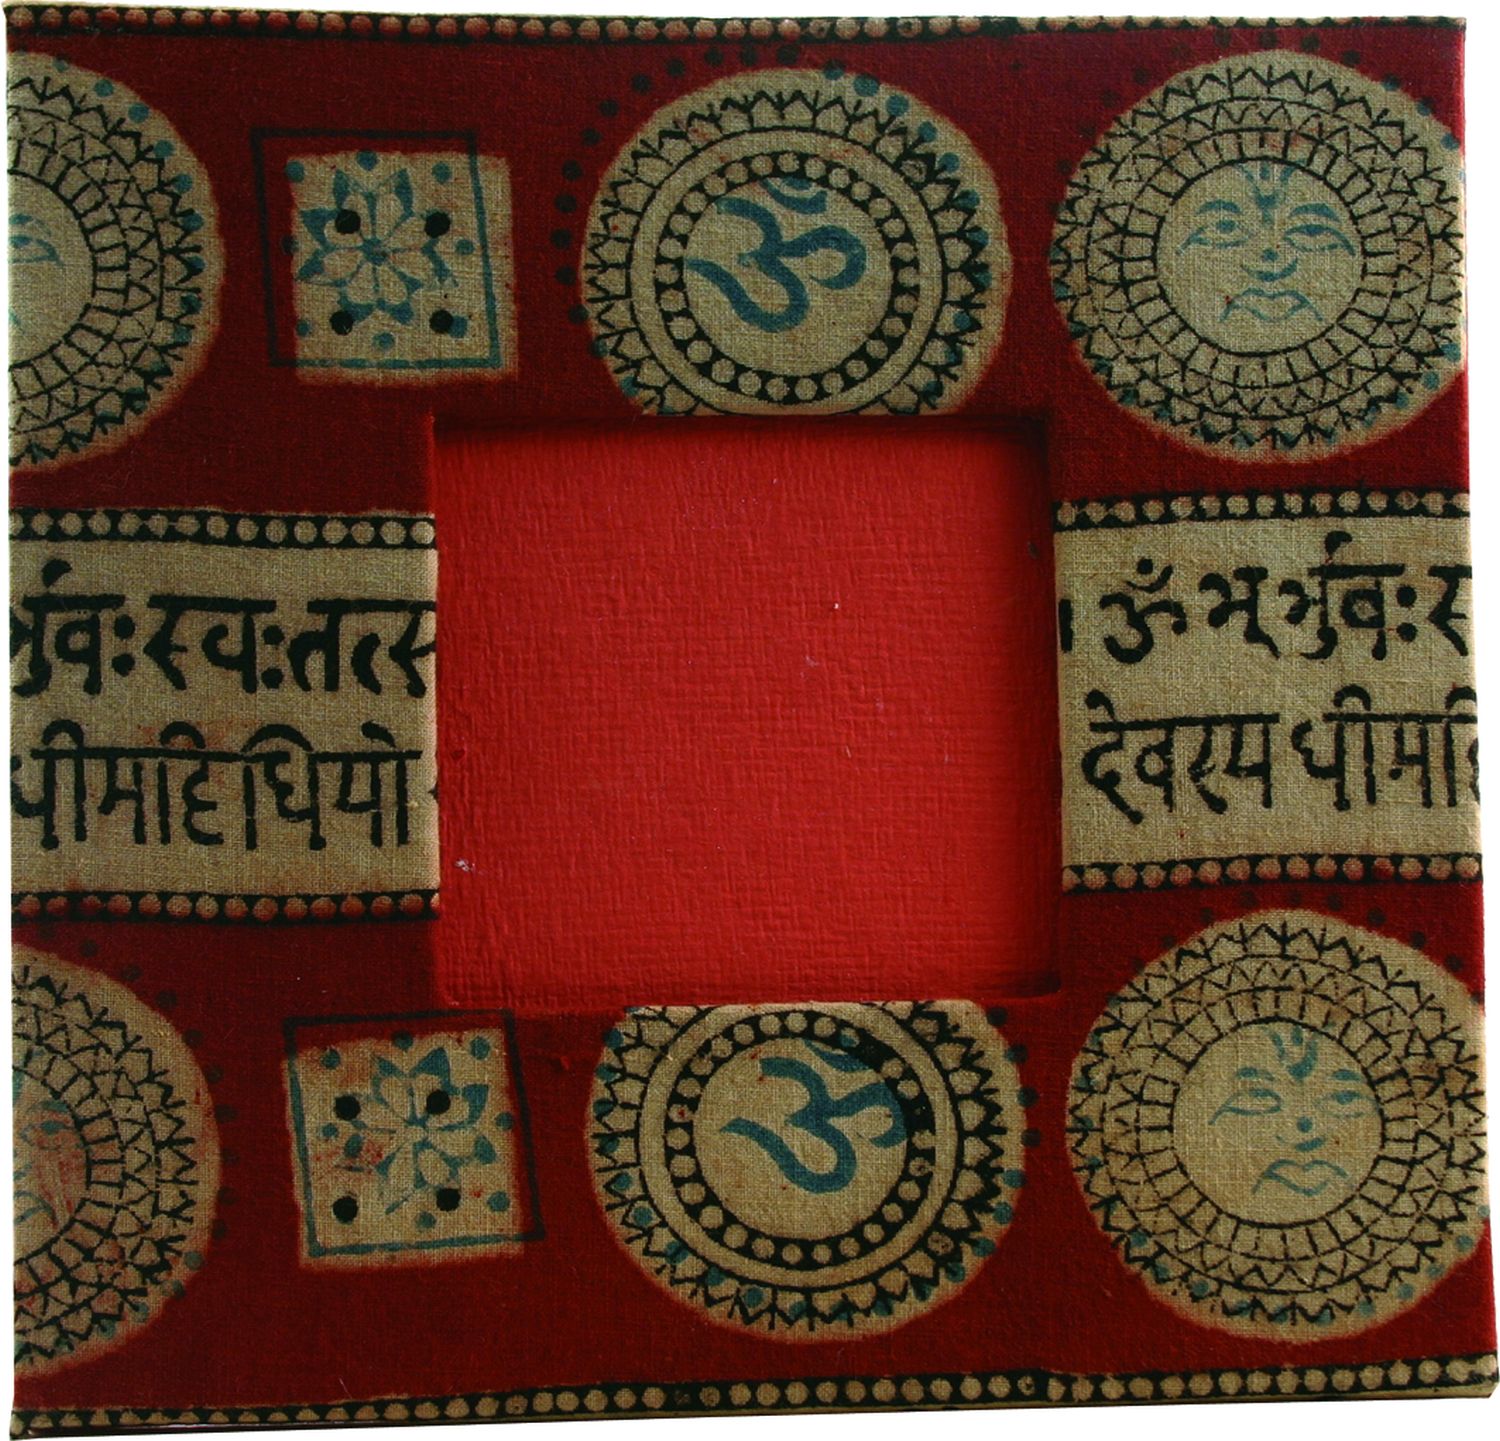 ॐ
र्भुवः स्वः तत्स
धीमहि धियो
ॐ भूर्भुवः स
देवस्य धीमहि
ॐ